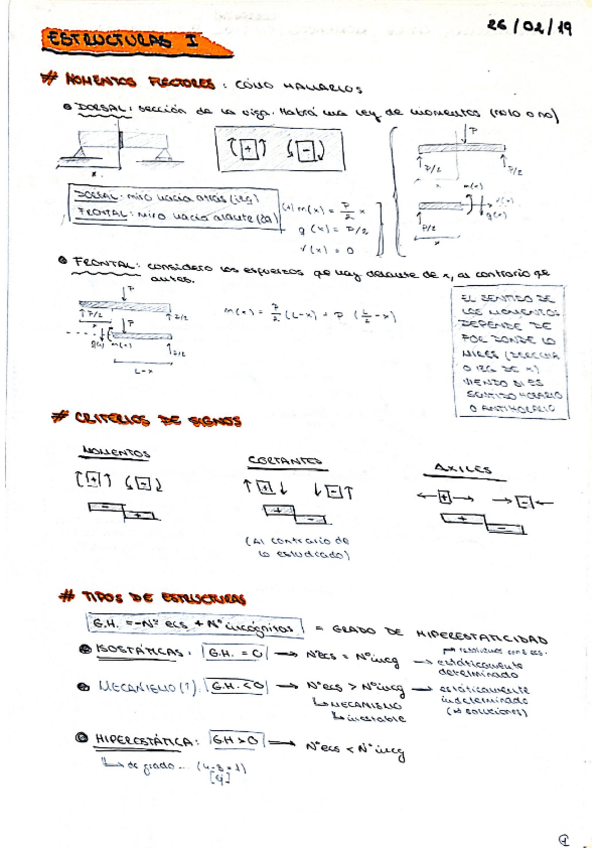 26/02/19
ESTRUCTURAS I
# MOMENTOS FLECTORES: CÓMO HALLARLOS
DORSAL: sección de la viga. Habrá una ley de momentos (solo o no)
x
[+] [-]
P
P/2
P/2
x
m(x)
q(x)
P/2
x
DORSAL: miro hacia atrás (izq)
FRONTAL: miro hacia delante (da)
m(x) = P/2 x
q(x) = P/2
v(x) = 0
FRONTAL: considero los esfuerzos que hay delante de x, al contrario que antes.
P
P/2
P
q(x) m(x)
L-x
m(x) = P/2 (L-x) + P (L/2 - x)
EL SENTIDO DE
LOS MOMENTOS
DEPENDE DE
POR DONDE LO
MIRES (DERECHA
O IZQ DE X)
VIENDO SI ES
SENTIDO HORARIO
O ANTIHORARIO
# CRITERIOS DE SIGNOS
MOMENTOS
CORTANTES
AXILES
[+] [-]
[+] [-]
[+] [-]
- -
+ -
+ -
(Al contrario de
lo estudiado)
# TIPOS DE ESTRUCTURAS
G.H. = -Nº ecs + Nº incógnitas = GRADO DE HIPERESTATICIDAD
ISOSTÁTICAS: G.H. = 0 → Nºecs = Nºincg → estáticamente
determinado
MECANISMO (1). G.H. < 0 → Nºecs > Nºincg → estáticamente
indeterminado
↳ MECANISMO
(∞ soluciones)
↳ inestable
HIPERESTÁTICA: G.H > 0 → Nºecs < Nºincg
↳ de grado... (4-3 = 1)
1